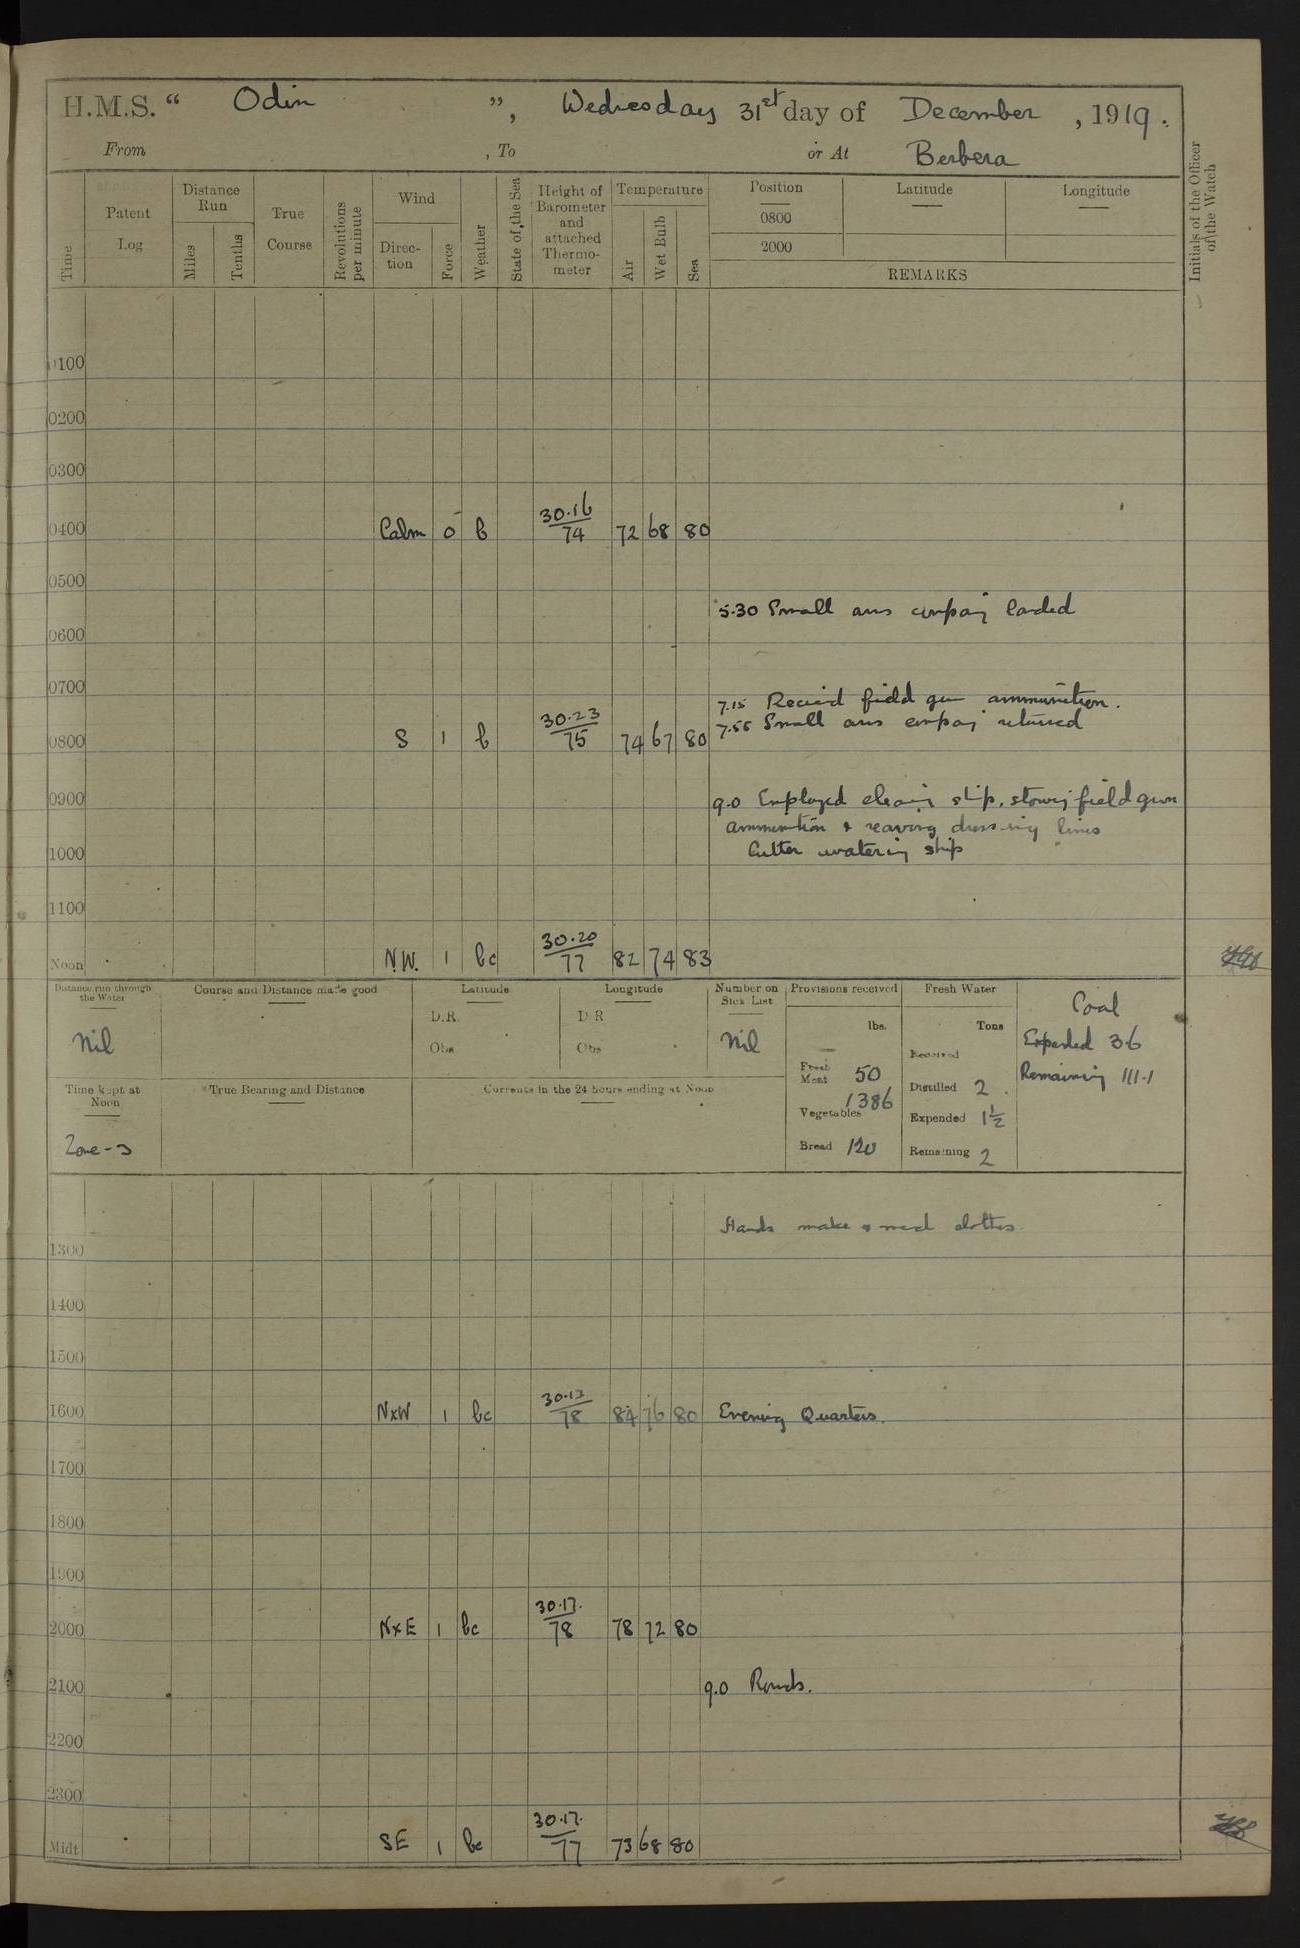 H.M.S. “ Odin ”, Wednesday 31st day of December, 1919.
From , To or At Berbera
Time
Patent Log
Distance Run
Miles
Tenths
True Course
Revolutions per minute
Wind
Direc-tion
Force
Weather
State of the Sea
Height of Barometer and attached Thermo-meter
Temperature
Air
Wet Bulb
Sea
Position Latitude Longitude
0800
2000
REMARKS
Initials of the Officer of the Watch
0100
0200
0300
0400 Calm 0 b 30.16 / 74 72 68 80
0500
5.30 Small arms company landed
0600
0700
7.15 Received field gun ammunition.
7.55 Small arms company returned
0800 S 1 b 30.23 / 75 74 67 80
0900
9.0 Employed cleaning ship, stowing field gun
ammunition & reaving dressing lines
1000
Cutter watering ship
1100
Noon N.W. 1 bc 30.20 / 77 82 74 83
Distance run through the Water
Nil
Course and Distance made good
Latitude
D.R.
Obs
Longitude
D R
Obs
Number on Sick List
Nil
Provisions received
lbs.
Fresh Meat 50
Vegetables 1386
Bread 120
Fresh Water
Tons
Received
Distilled 2
Expended 1½
Remaining 2
Coal
Expended 3.6
Remaining 111.1
Time kept at Noon
Zone -3
True Bearing and Distance
Currents in the 24 hours ending at Noon
Hands make & mend clothes
1300
1400
1500
1600 NxW 1 bc 30.13 / 78 84 76 80 Evening Quarters.
1700
1800
1900
2000 NxE 1 bc 30.17. / 78 78 72 80
2100 9.0 Rounds.
2200
2300
Midt SE 1 bc 30.17. / 77 73 68 80